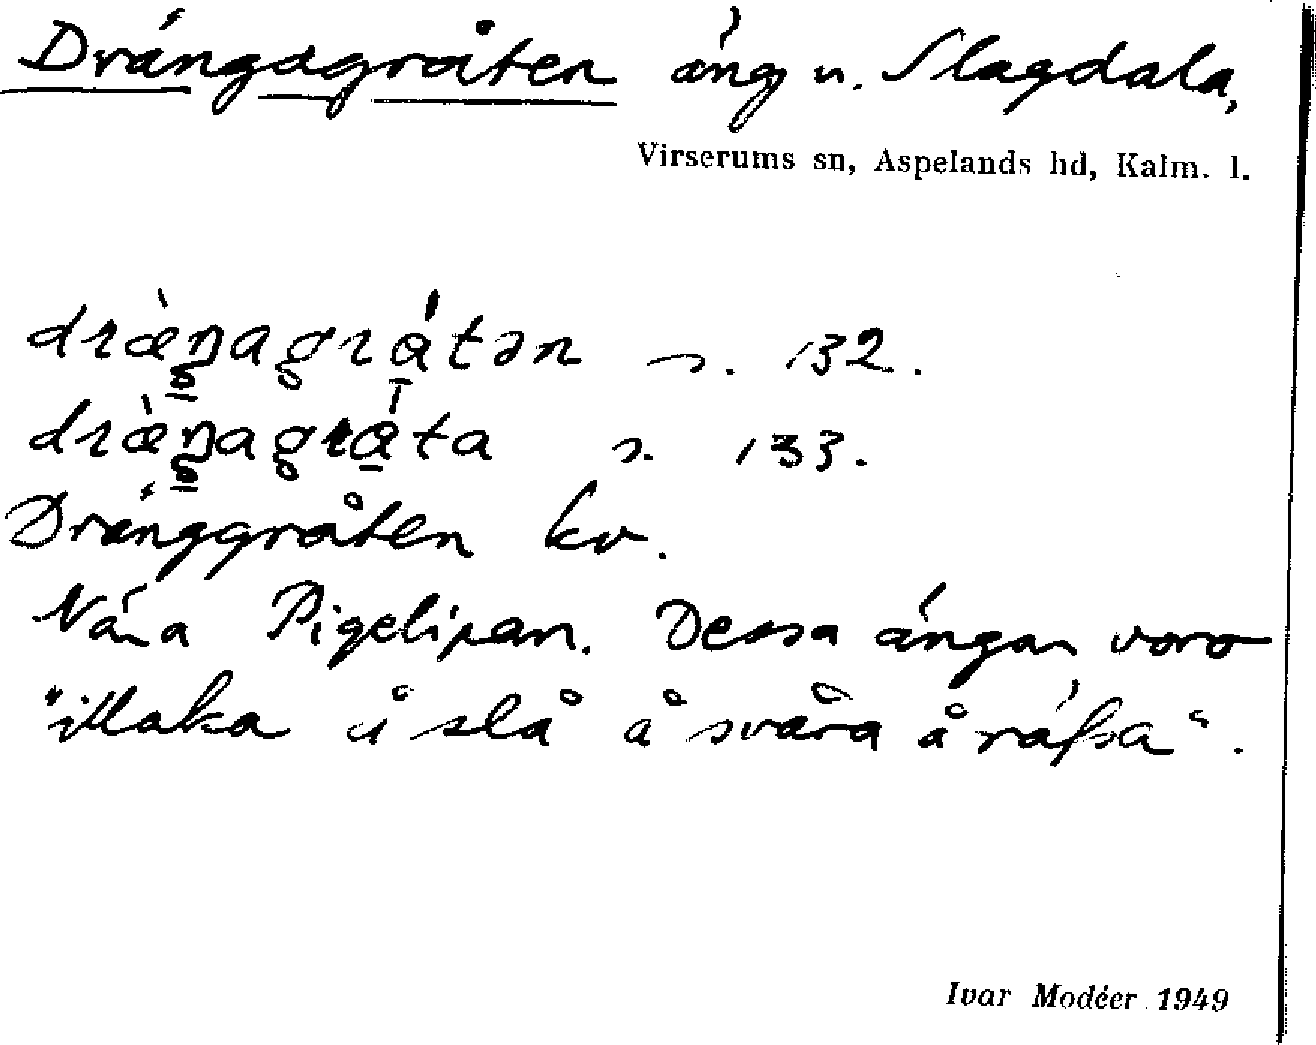 Drängagråten äng u. Slagdala,
Virserums sn, Aspelands hd, Kalm. l.
dræ̀ŋagrátən s. 132.
dræ̀ŋagráta s. 133.
Dränggråten kv.
Nära Pigelipan. Dessa ängar voro
"illaka å slå å svåra å räfsa".
Ivar Modéer 1949